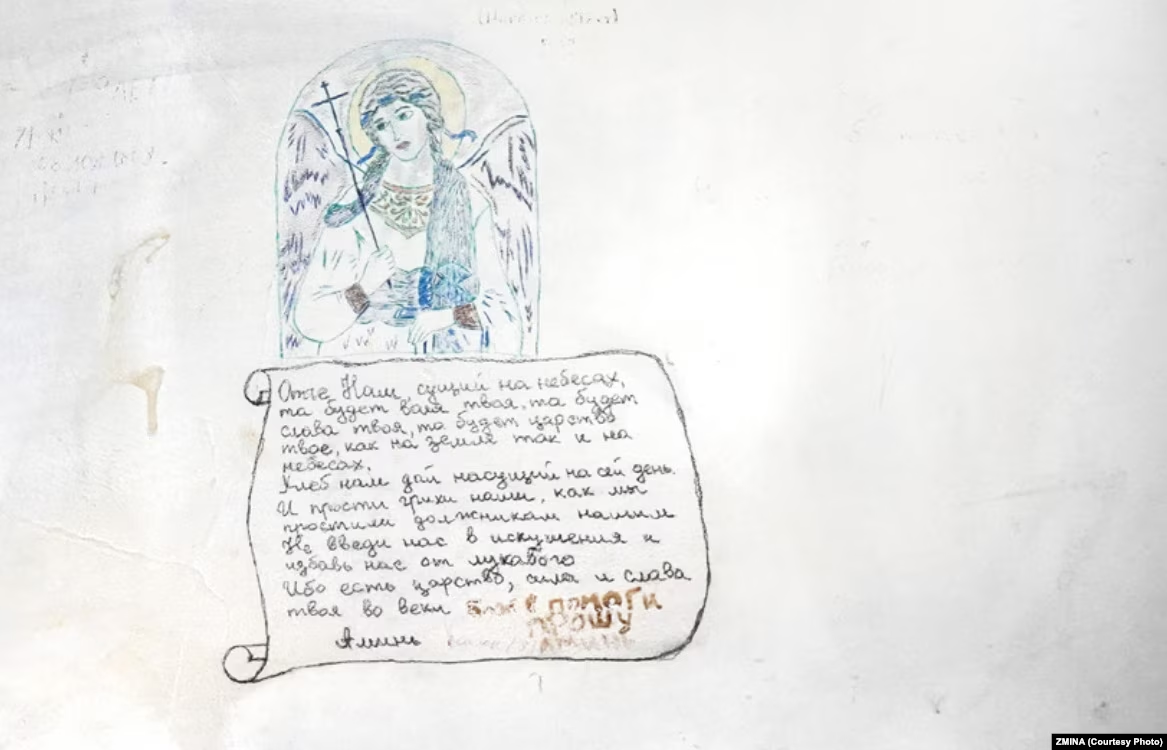 Отче Наш, сущий на небесах,
та будет воля твоя, та будет
слава твоя, та будет царство
твое, как на земле так и на
небесах.
Хлеб нам дай насущий на сей день.
И прости грихи наши, как мы
простили должникам нашим
Не введи нас в искушения и
избавь нас от лукавого
Ибо есть царство, сила и слава
твоя во веки помоги
прошу
Аминь
ZMINA (Courtesy Photo)